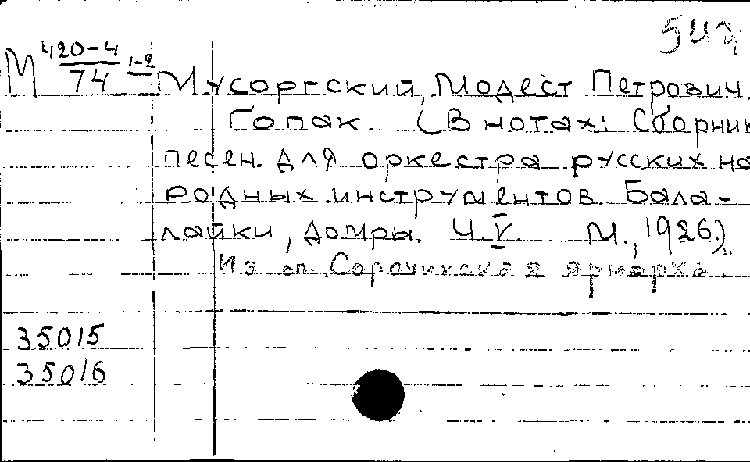 М 420-4/74 1-2
Мусоргский, Модест Петрович.
Гопак. (В нотах: Сборник
песен для оркестра русских на
родных инструментов. Бала-
лайки, домры. Ч. V М., 1926.)
Из оп. Сорочинская ярмарка.
35015
35016